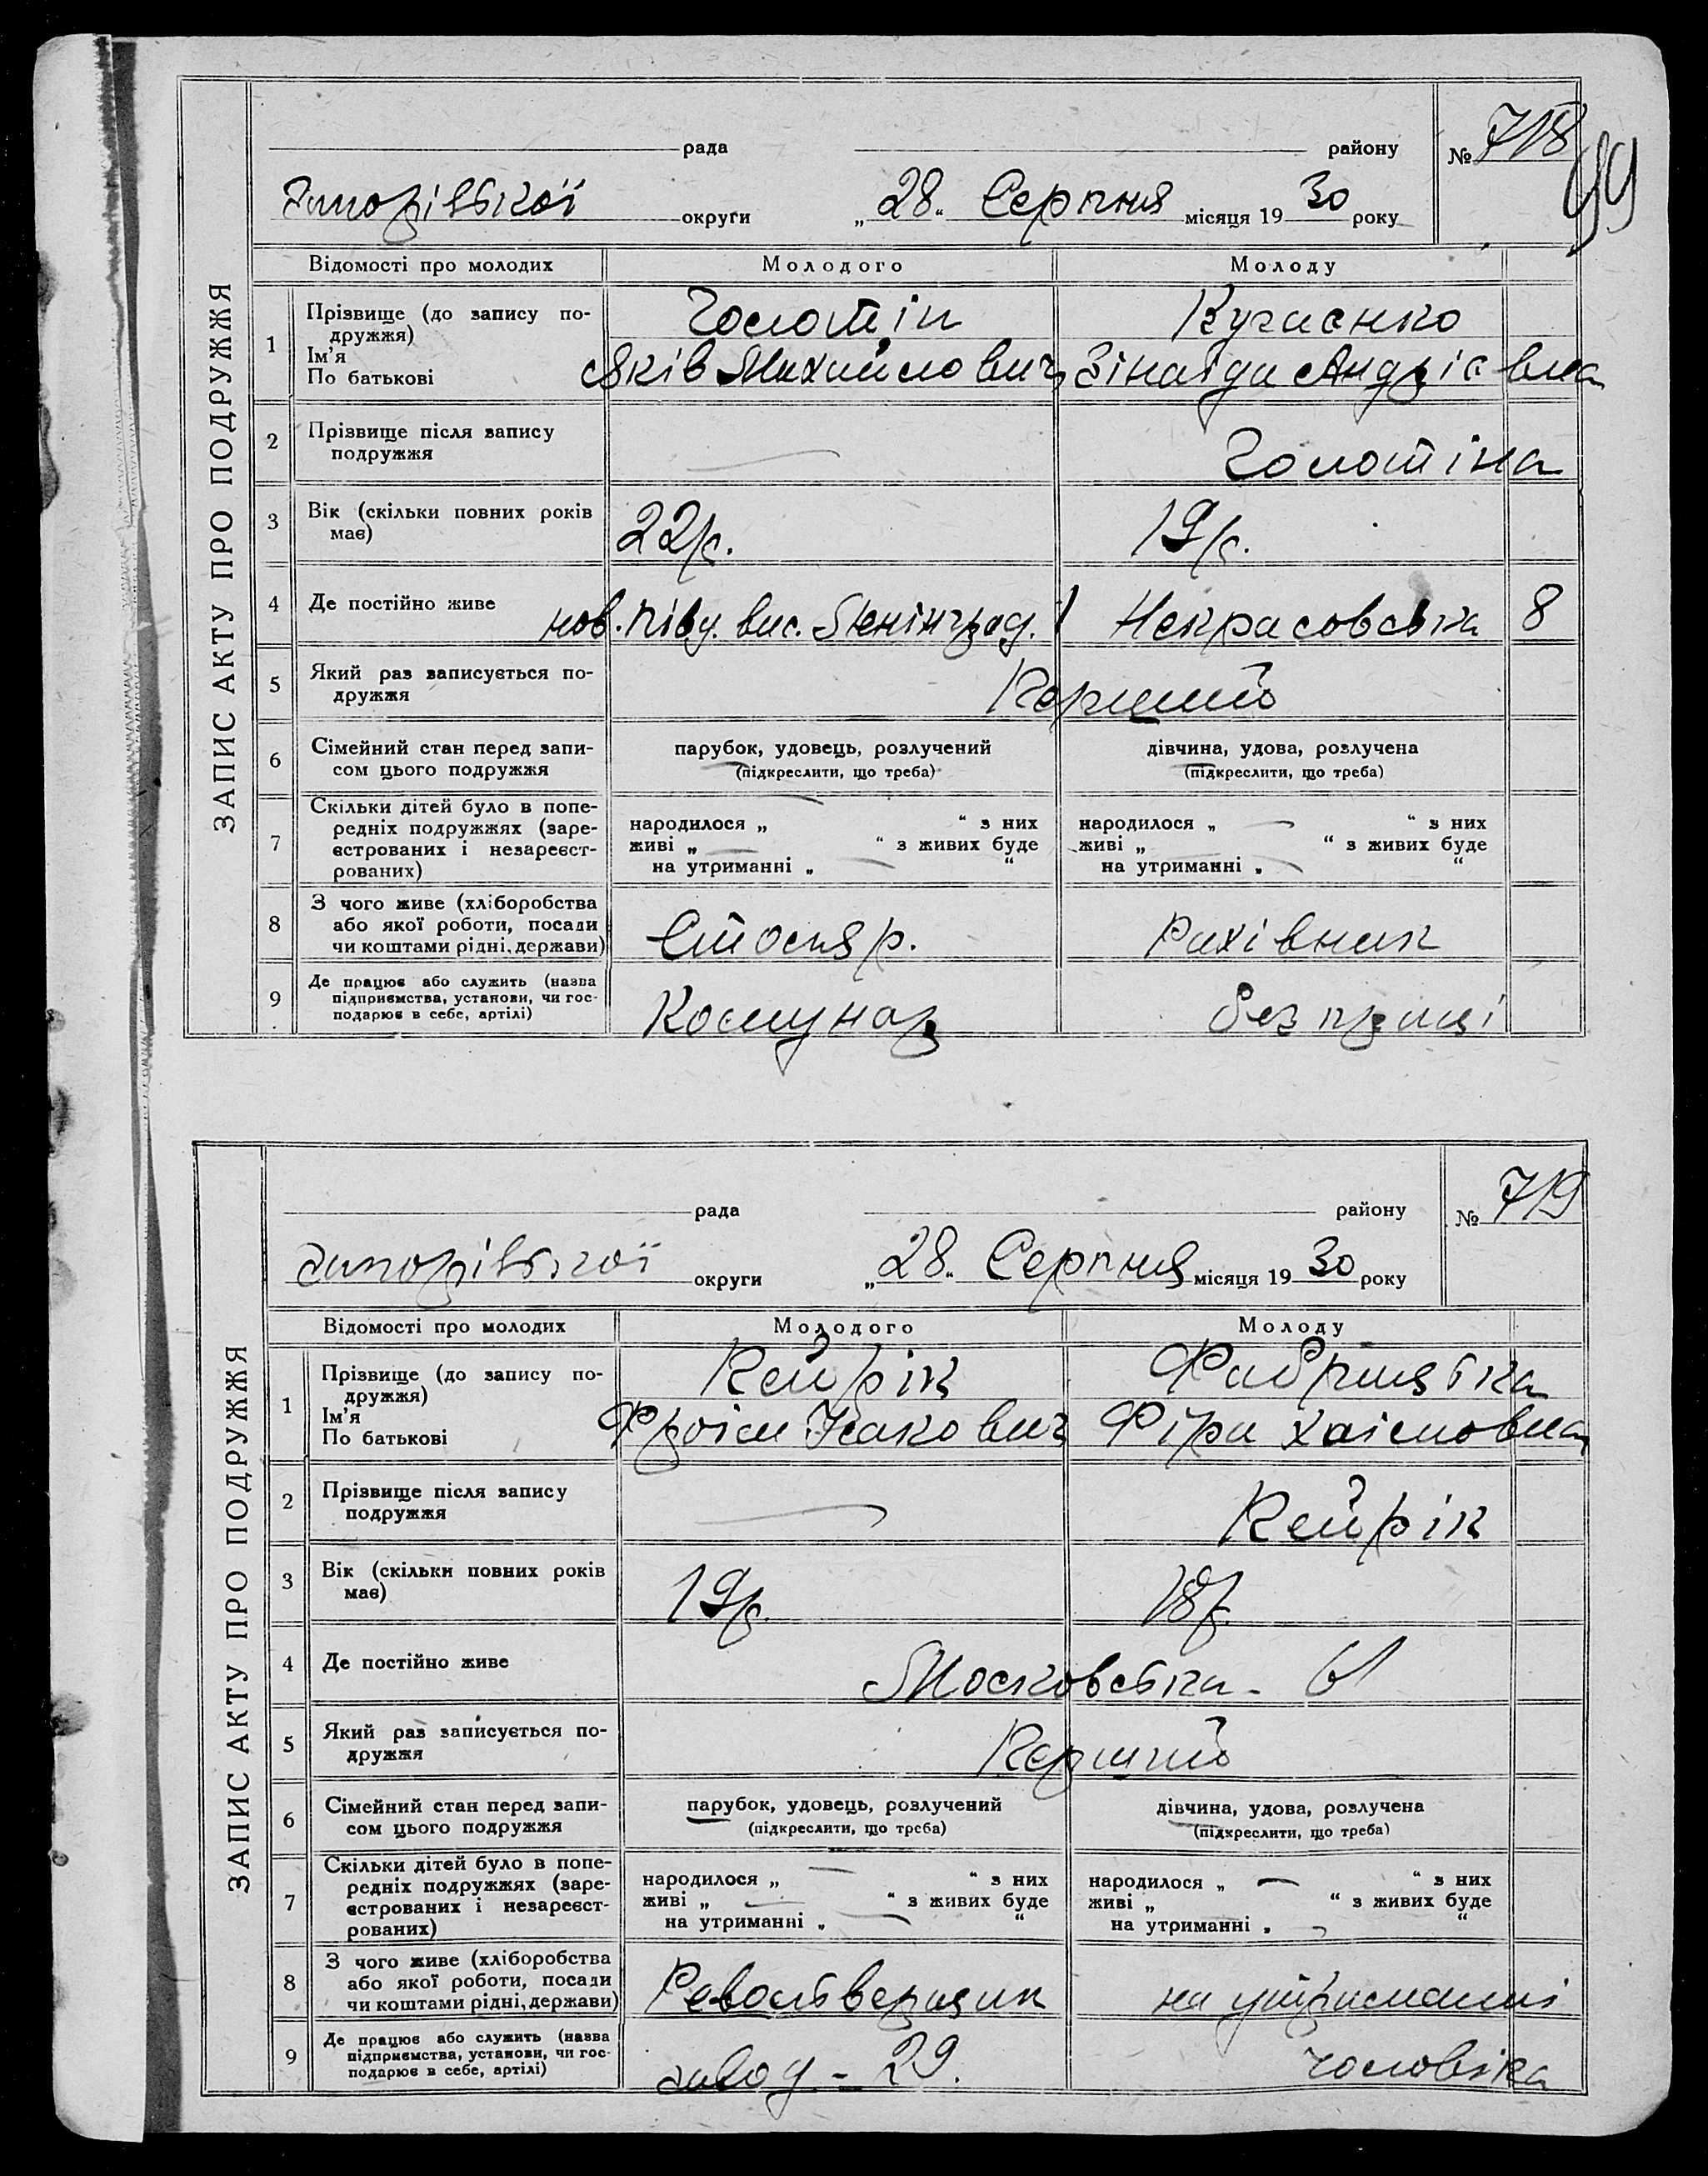 ЗАПИС АКТУ ПРО ПОДРУЖЖЯ
рада району № 718
99
Запорізької округи „28“ Серпня місяця 1930 року
Відомості про молодих Молодого Молоду
1 Прізвище (до запису подружжя) Голотін
Ім'я
По батькові Яків Михайлович Зінаїда Андріевна
2 Прізвище після запису подружжя — Голотіна
3 Вік (скільки повних років має) 22 р. 19 р.
4 Де постійно живе нов. півд. вис. Ленінград. 1 Некрасовська 8
5 Який раз записується подружжя Перший
6 Сімейний стан перед записом цього подружжя парубок, удовець, розлучений дівчина, удова, розлучена
(підкреслити, що треба) (підкреслити, що треба)
7 Скільки дітей було в попередніх подружжях (зареєстрованих і незареєстрованих)
народилося „ — “ з них народилося „ — “ з них
живі „ — “ з живих буде живі „ — “ з живих буде
на утриманні „ — “ на утриманні „ — “
8 З чого живе (хліборобства або якої роботи, посади чи коштами рідні, держави) Столяр. Рахівник
9 Де працює або служить (назва підприємства, установи, чи господарює в себе, артілі) Комунар без праці
ЗАПИС АКТУ ПРО ПОДРУЖЖЯ
рада району № 719
Запорізької округи „28“ Серпня місяця 1930 року
Відомості про молодих Молодого Молоду
1 Прізвище (до запису подружжя) Кейрік
Ім'я
По батькові Фроім Ісакович Фіра Хаімовна
2 Прізвище після запису подружжя — Кейрік
3 Вік (скільки повних років має) 19 р. 18 р.
4 Де постійно живе Московська - 61
5 Який раз записується подружжя Перший
6 Сімейний стан перед записом цього подружжя парубок, удовець, розлучений дівчина, удова, розлучена
(підкреслити, що треба) (підкреслити, що треба)
7 Скільки дітей було в попередніх подружжях (зареєстрованих і незареєстрованих)
народилося „ — “ з них народилося „ — “ з них
живі „ — “ з живих буде живі „ “ з живих буде
на утриманні „ — “ на утриманні „ — “
8 З чого живе (хліборобства або якої роботи, посади чи коштами рідні, держави) Револьверщик на утриманні
9 Де працює або служить (назва підприємства, установи, чи господарює в себе, артілі) завод - 29. чоловіка